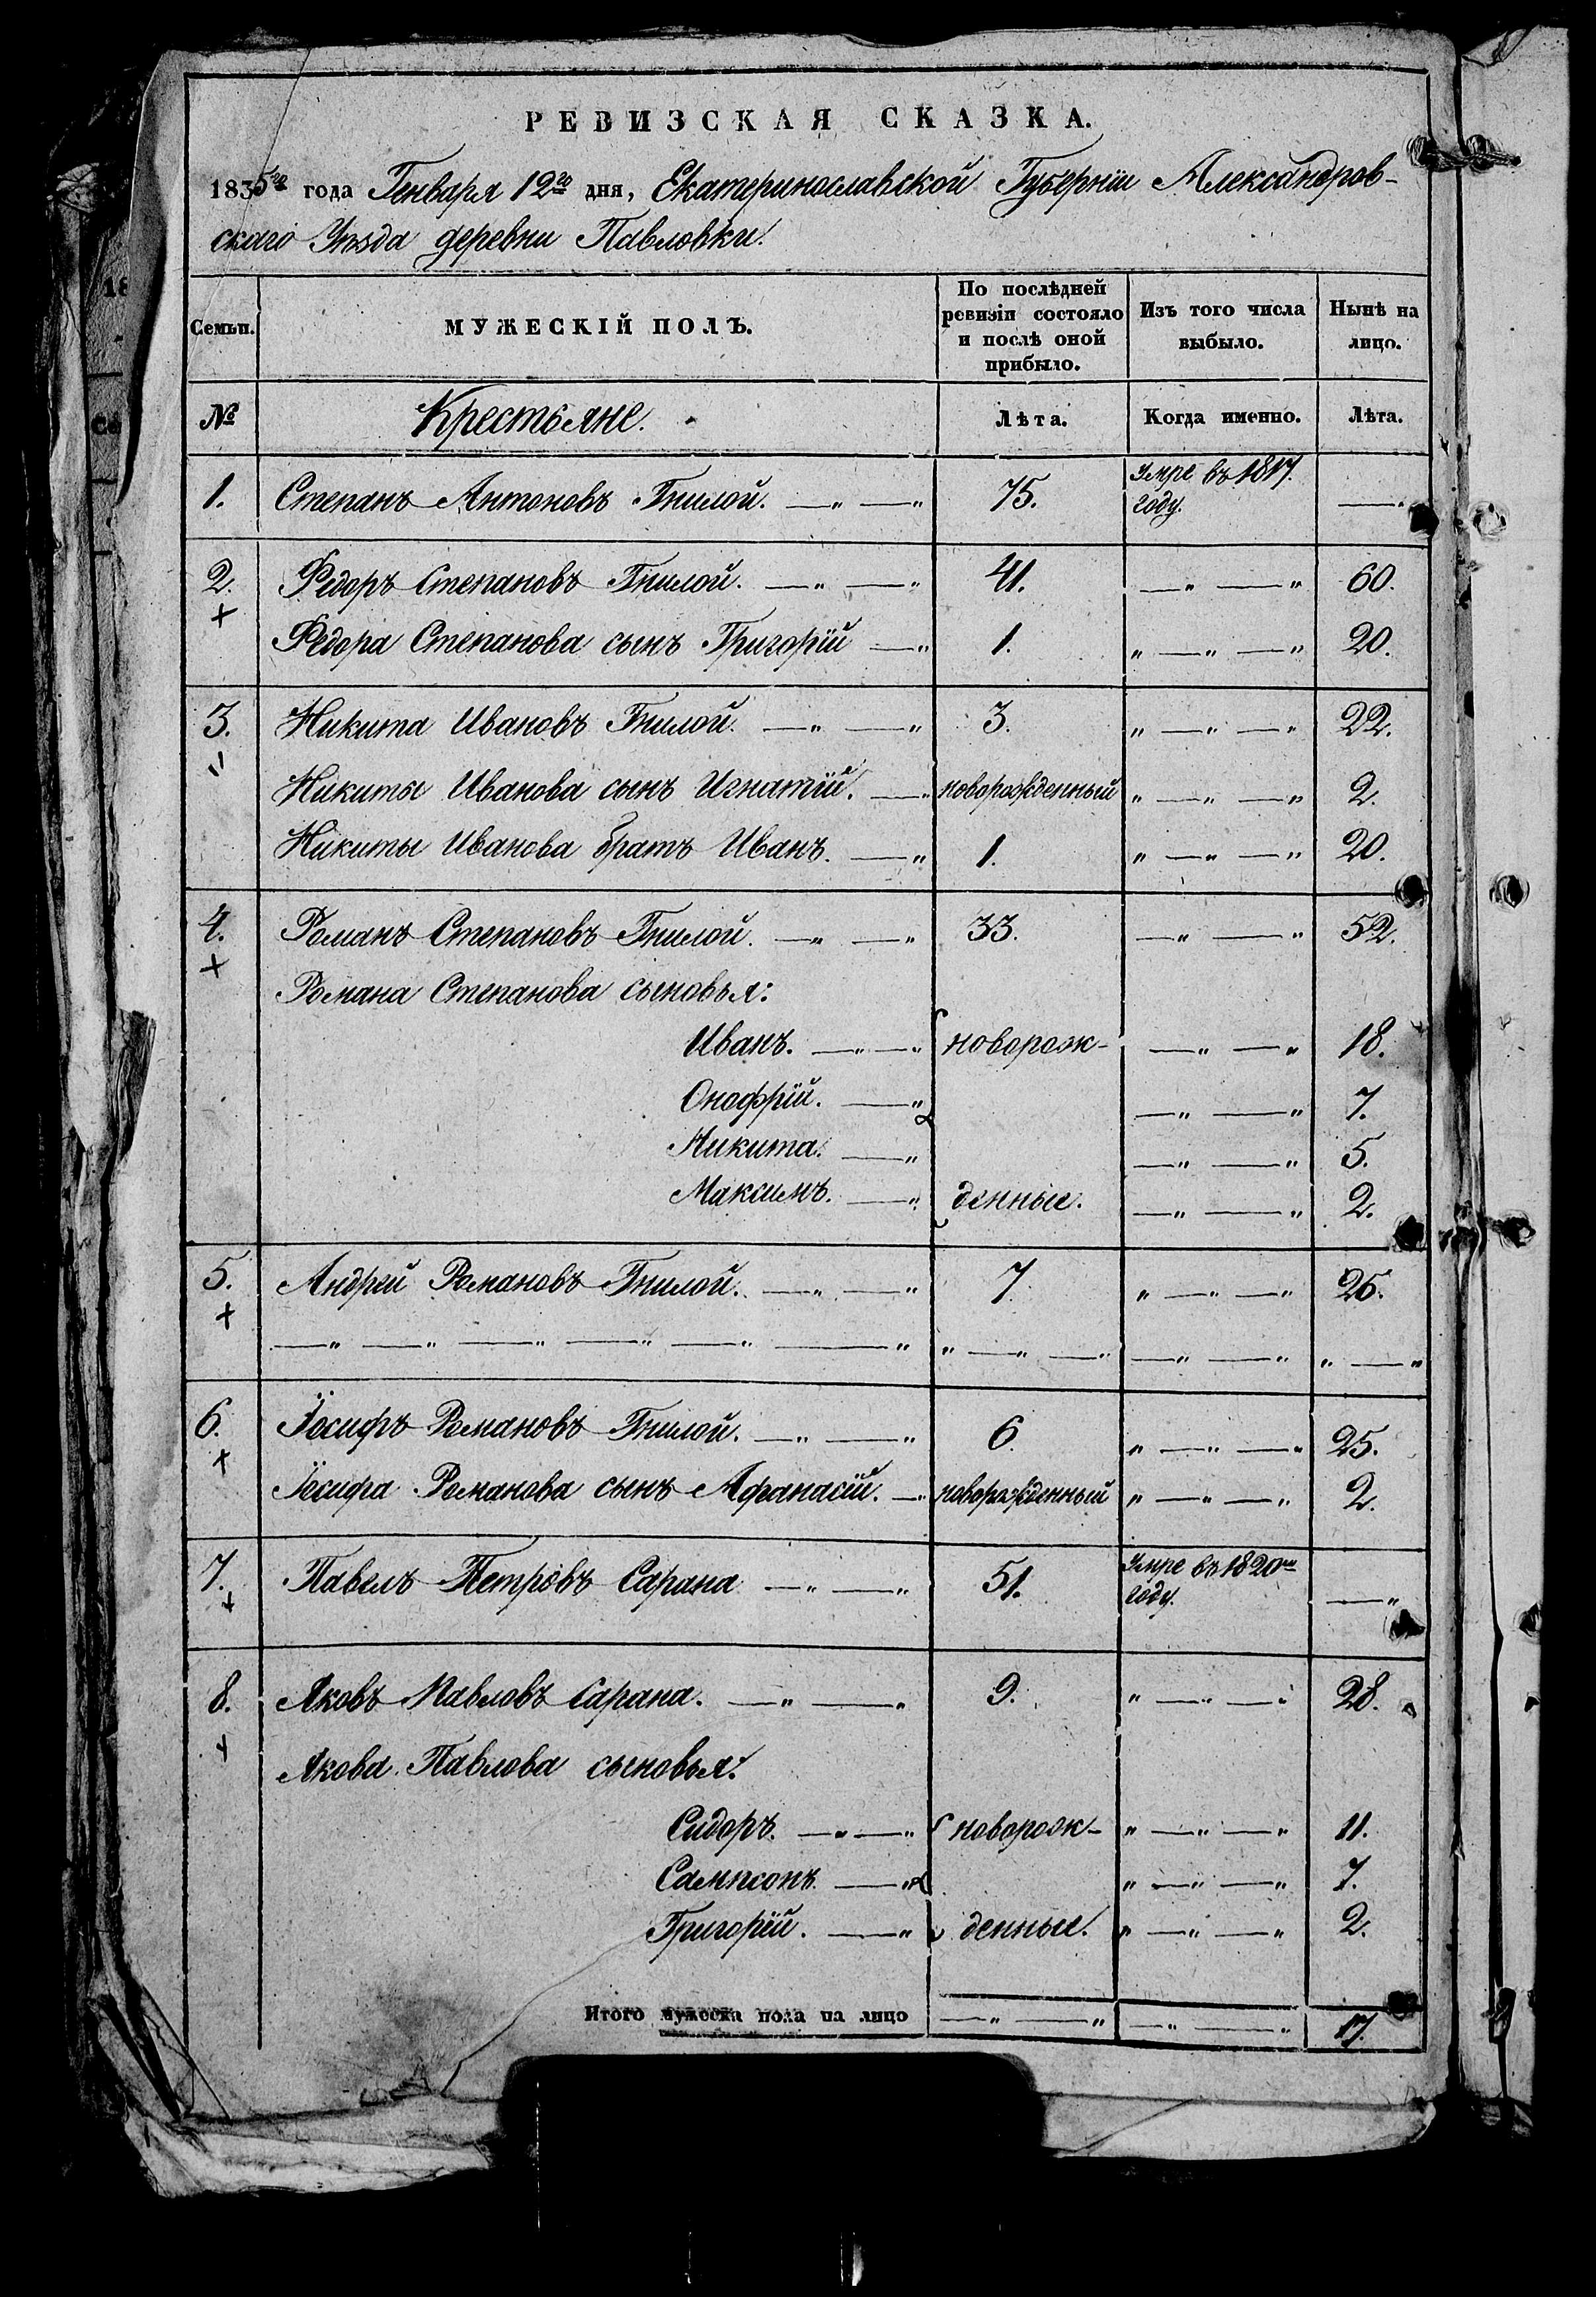 РЕВИЗСКАЯ СКАЗКА.
1835го года Генваря 12го дня, Екатеринославской Губернiи Александров-
скаго Уѣзда деревни Павловки.
Семьи. МУЖЕСКIЙ ПОЛЪ. По послѣдней ревизiи состояло и послѣ оной прибыло. Изъ того числа выбыло. Нынѣ на лицо.
№ Крестьяне. Лѣта. Когда именно. Лѣта.
1. Степанъ Антоновъ Гнилой. —„ —„ 75. Умре въ 1817. году. —„
2. Федоръ Степановъ Гнилой. —„ —„ 41. —„ —„ 60.
+ Федора Степанова сынъ Григорiй —„ 1. „ —„ —„ 20.
3. Никита Ивановъ Гнилой. —„ —„ 3. „ —„ —„ 22.
„ Никиты Иванова сынъ Игнатiй. —„ новорожденный „ —„ —„ 2.
Никиты Иванова братъ Иванъ. —„ 1. „ —„ —„ 20.
4. Романъ Степановъ Гнилой. —„ —„ 33. —„ —„ 52.
+ Романа Степанова сыновья:
Иванъ. —„ —„ новорож- —„ —„ 18.
Онофрiй. —„ —„ —„ 7.
Никита. —„ —„ —„ 5.
Максимъ. —„ денные. —„ —„ 2.
5. Андрей Романовъ Гнилой. —„ —„ 7. „ —„ —„ 26.
+ —„ —„ —„ —„ —„ —„ „ —„ —„ —„ —„ „ —„
6. Iосифъ Романовъ Гнилой. —„ —„ 6. „ —„ —„ 25.
+ Iосифа Романова сынъ Афанасiй. —„ новорожденный „ —„ —„ 2.
7. Павелъ Петровъ Сарана —„ —„ 51. Умре въ 1820мъ году. —„
+
8. Яковъ Павловъ Сарана. —„ —„ 9. „ —„ —„ 28.
+ Якова Павлова сыновья:
Сидоръ. —„ —„ новорож- „ —„ —„ 11.
Сампсонъ. —„ „ —„ —„ 7.
Григорiй. —„ денные. „ —„ —„ 2.
Итого мужеска пола на лицо —„ —„ —„ —„ 17.